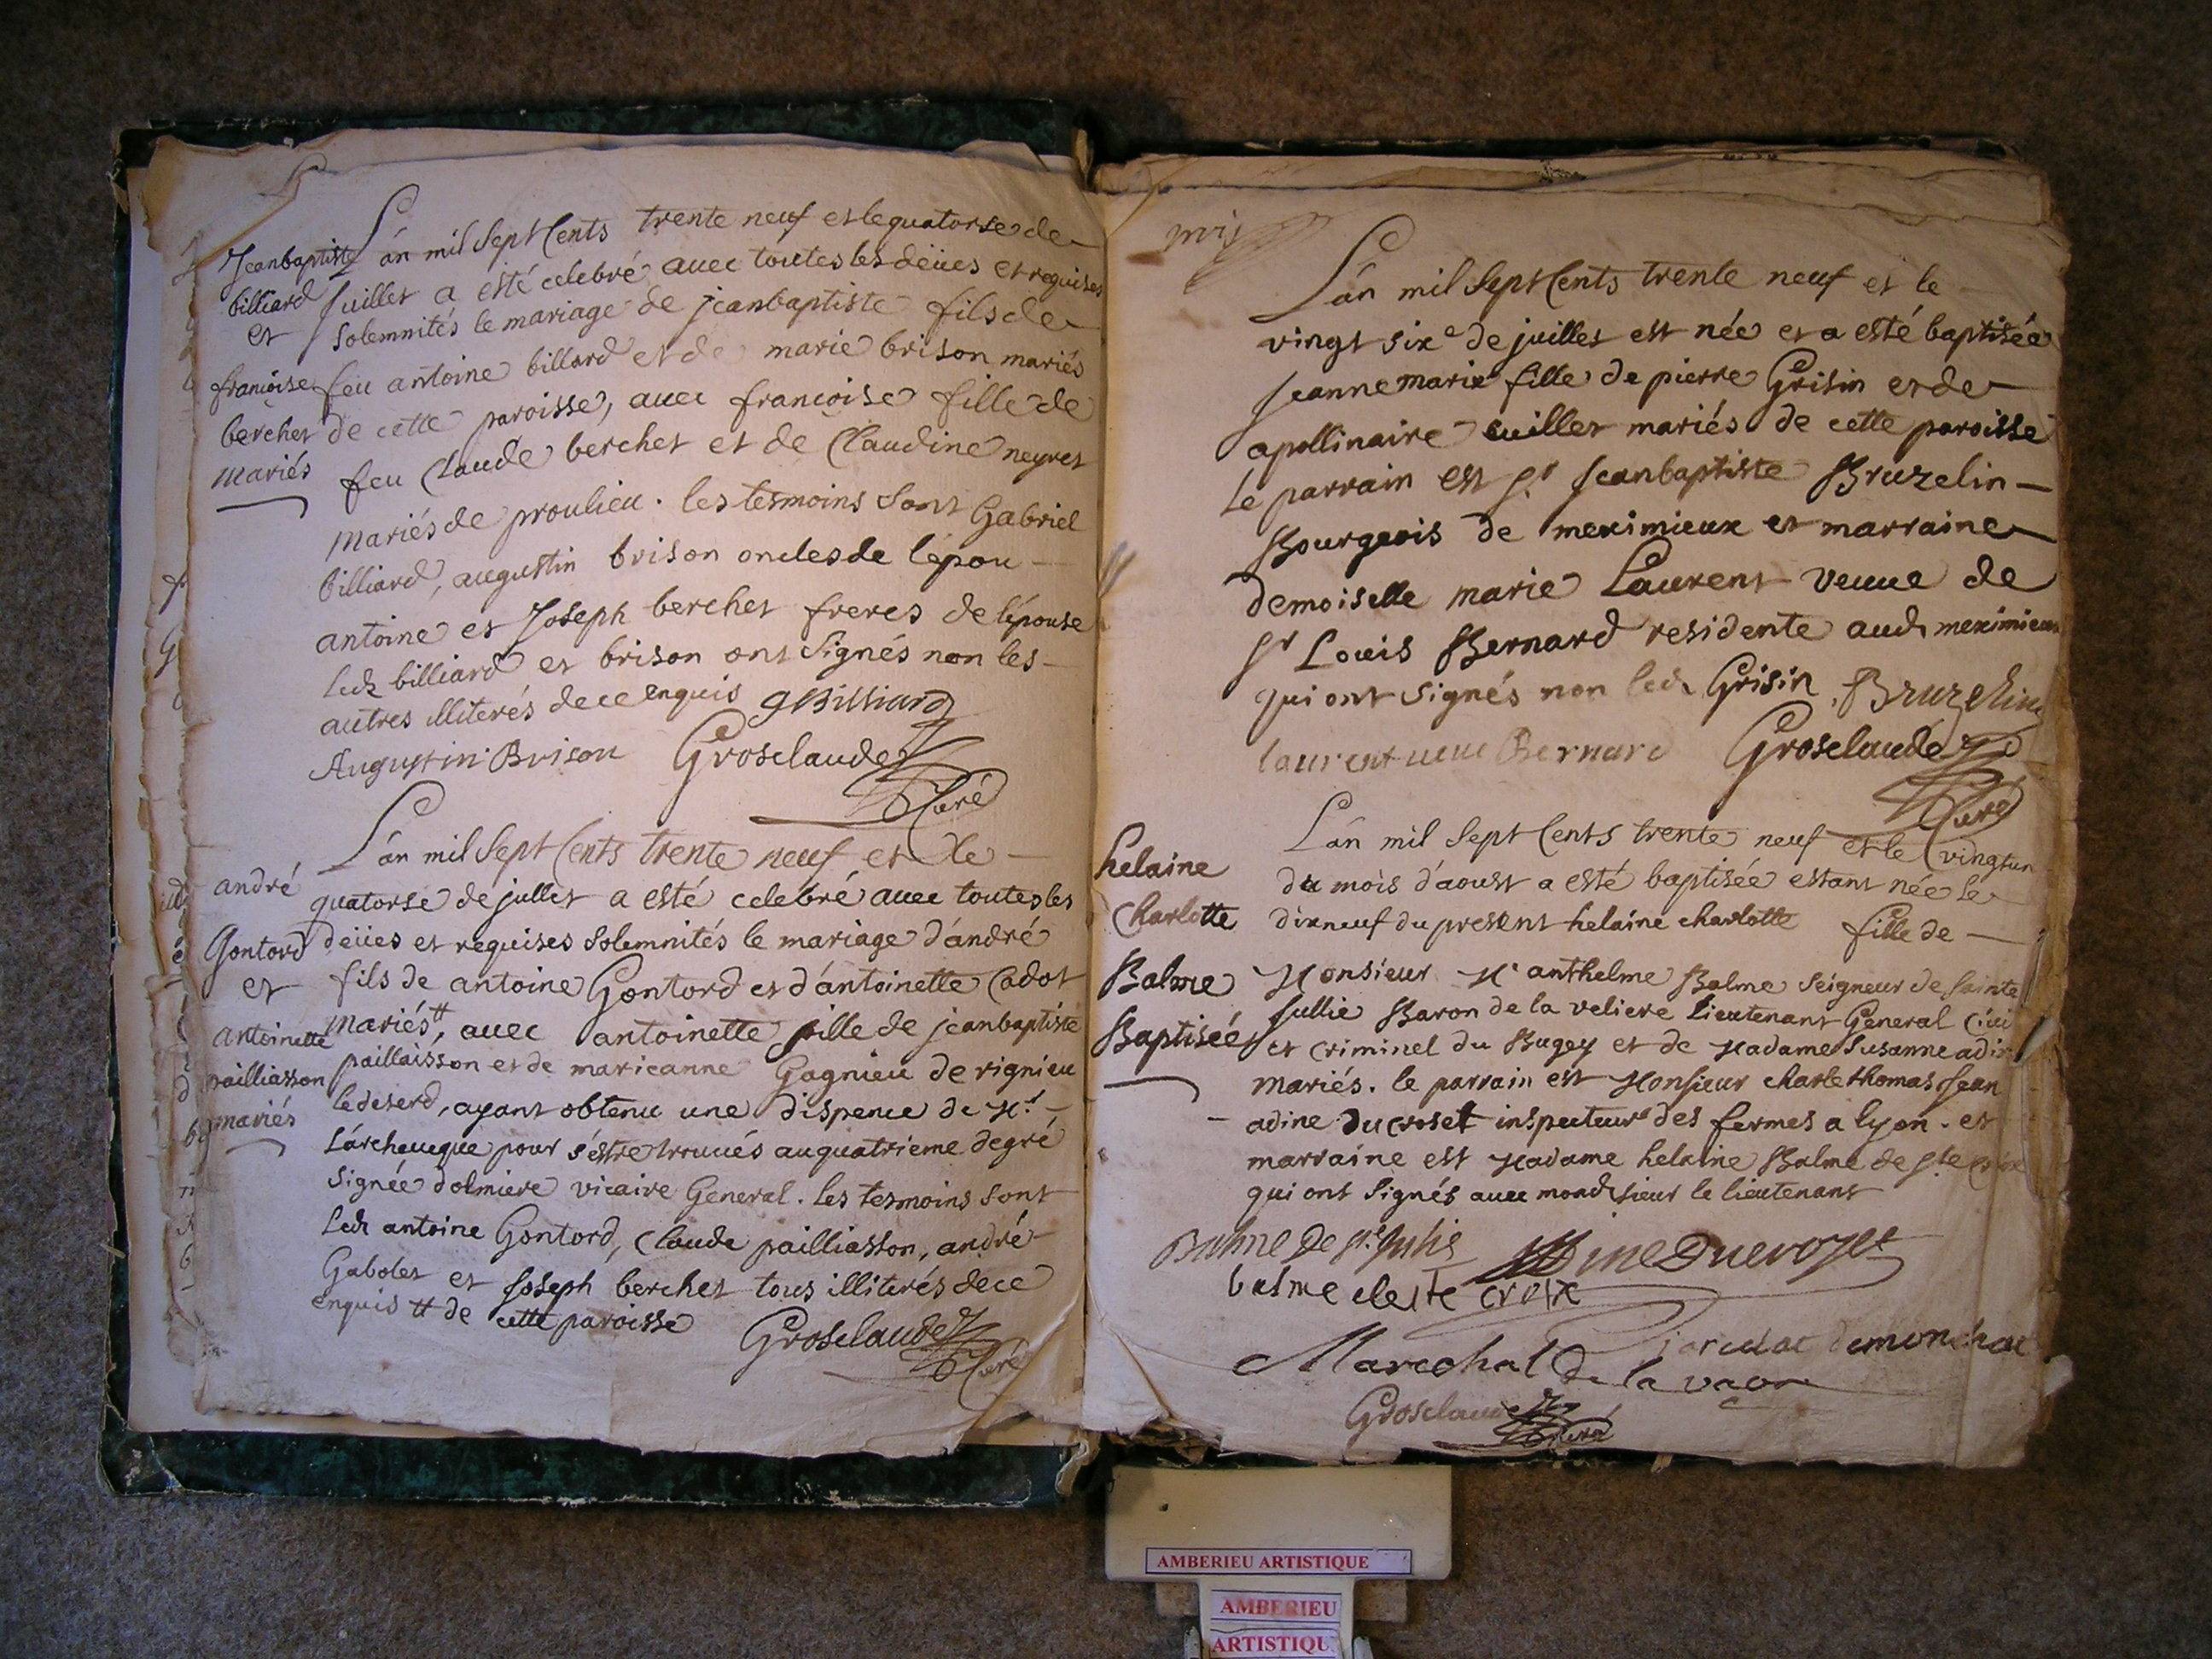 Jeanbaptiste
billiard
et
francoise
berchet
mariés
Lán mil Sept Cents trente neuf et le quatorse de
Juillet a esté celebré avec toutes les deües et requises
solemnités le mariage de jeanbaptiste fils de
feu antoine billard et de marie brison mariés
de cette paroisse, avec francoise fille de
feu Claude berchet et de Claudine neyret
mariés de proulieu. les tesmoins sont Gabriel
billiard, augustin brison oncles de lépou
antoine et Joseph berchet freres de lépouse
led. billiard et brison ont signés non les
autres illiterés de ce enquis GBilliard
Augustin Brison Grosclaude
Curé
andré
Gontord
et
antoinette
pailliasson
mariés
Lán mil Sept Cents trente neuf et le
quatorse de jullet a esté celebré avec toutes les
deües et requises solemnités le mariage d'andré
fils de antoine Gontord et d'antoinette Cadot
mariés tt, avec antoinette fille de jeanbaptiste
paillaisson et de marieanne Gagnieu de rignieu
le deserd, ayant obtenu une dispence de Mr
Lárcheveque pour s'éstre trouvés au quatrieme degré
signée dolmiere vicaire General. les tesmoins sont
Led. antoine Gontord, Claude pailliasson, andré
Gabolet et Joseph berchet tous illiterés de ce
enquis tt de cette paroisse Grosclaude
Curé
Lán mil Sept Cents trente neuf et le
vingt sixe de juillet est née et a esté baptisée
Jeanne marie fille de pierre Grisin et de
apollinaire cuillet mariés de cette paroisse
Le parrain est Sr Jeanbaptiste Bruzelin
Bourgeois de meximieux et marraine
demoiselle marie Laurent veuve de
Sr Louis Bernard residente aud. meximieux
qui ont signés non led. Grisin. Bruzelin
laurent veuve Bernard Grosclaude
Curé
helaine
Charlotte
Balme
Baptisée
Lán mil Sept Cents trente neuf et le vingtun
du mois d'aoust a esté baptisée estant née le
dixneuf du present helaine charlotte fille de
Monsieur Mr anthelme Balme Seigneur de Sainte
Jullie Baron de la veliere Lieutenant General Civil
et Criminel du Bugey et de Madame Susanne adine
mariés. le parrain est Monsieur charle thomas Jean
adine Ducroset inspecteur des fermes a lyon. et
marraine est Madame helaine Balme de Ste Croix
qui ont signés avec mondsieur le lieutenant
Balme de Ste Julie Adine Ducroset
balme de ste croix
demonchat
Marechal De la
Grosclaude
Curé
AMBERIEU ARTISTIQUE
AMBERIEU
ARTISTIQU